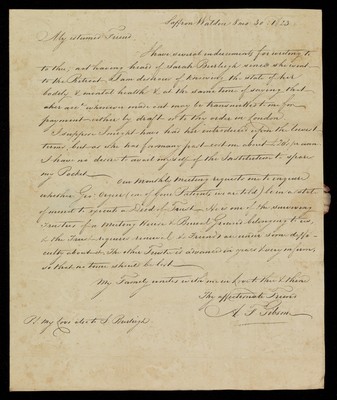 Saffron Walden 8 mo 30 1823
My esteemed Friend
I have several inducements for writing to
to thee, not having heard of Sarah Burleigh since she went
to the Retreat, I am desirous of knowing the state of her
bodily & mental health & at the same time of saying that
when ever may be transmitted to me for
payment either by draft or to thy order in London
I suppose I might have had her introduced upon the lowest
terms but as she has from any
I have no desire to avail myself of the Institution to spare
my Pocket.
Our Monthly Meeting requests me to enquire
whether Geo: (one of your Patients we are told) be in a state
of mind to execute a Deed of Trust. He is one of the surviving
Trustees of a Meeting House & Burial Ground belonging to us,
& the Trust requires renewal & Friends are under some diffi-
culty about it. The other Trustee is advanced in years & very infirm,
so that no time should be lost
My Family unites with me in love to thee & thine
Thy affectionate Friend
A. F. Gibson
PS my love also to S Burleigh